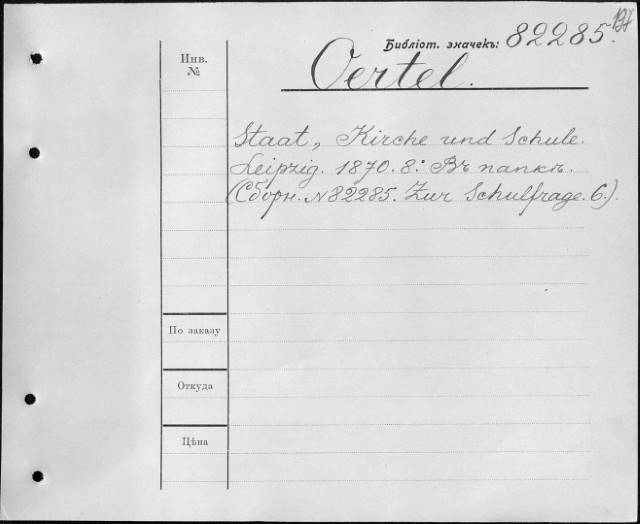 Библіот. значекъ: 82285.
Инв. №
Oertel.
Staat, Kirche und Schule.
Leipzig. 1870. 8º. Въ папкѣ.
(Сборн. № 82285. Zur Schulfrage. 6.).
По заказу
Откуда
Цѣна